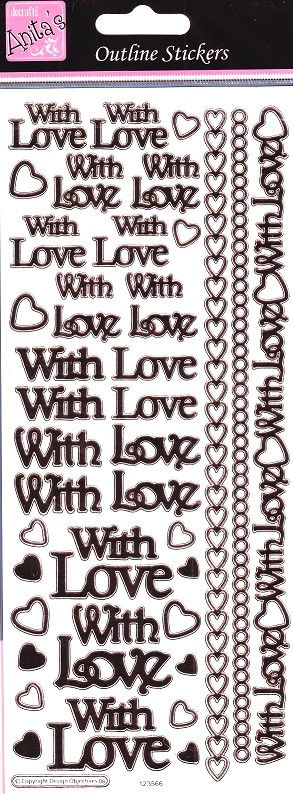 docrafts
Anita's
Outline Stickers
With With
Love Love
With With
Love Love
With With
Love Love
With With
Love Love
With Love
With Love
With Love
With Love
With
Love
With
Love
With
Love
With Love With Love With Love With Love
© Copyright Design Objectives 06
123566